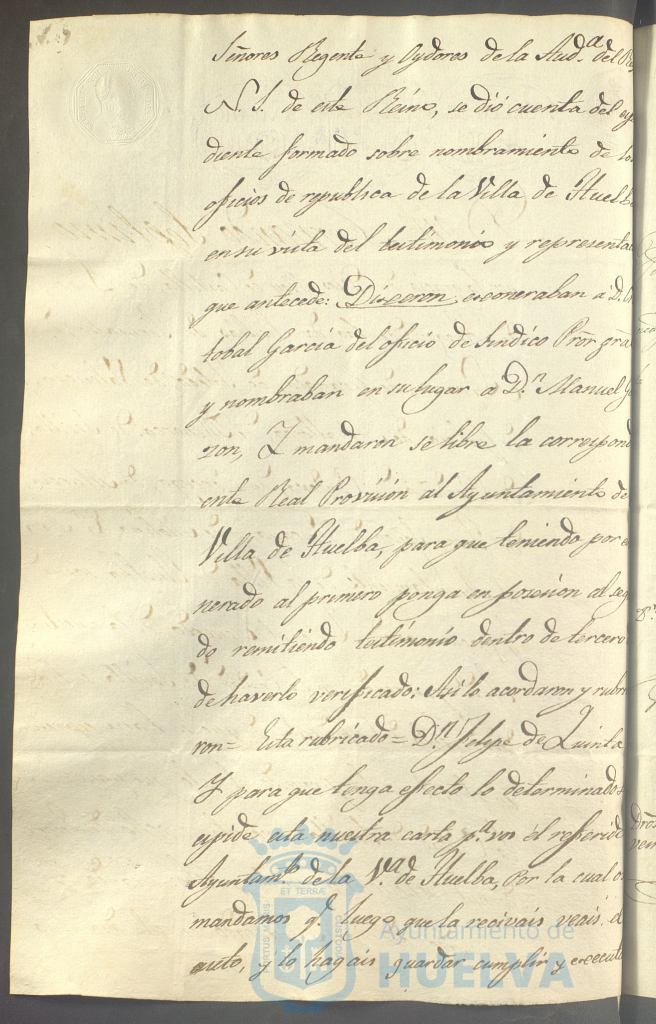 Señores Regente y Oydores de la Aud.ª del
N. S. de este Reino, se dió cuenta del
diente formado sobre nombramiento de
oficios de republica de la Villa de Huelb
en su vista del testimonio y representa
que antecede: Dixeron, exoneraban á D.
tobal Garcia del oficio de Sindico Pror gra
y nombraban en su lugar a D.n Manuel
zon, Y mandaron se libre la correspond
ente Real Provision al Ayuntamiento de
Villa de Huelba, para que teniendo por
nerado al primero ponga en posesion al seg
do remitiendo testimonio dentro de tercero
de haverlo verificado: Asi lo acordaron y rubri
ron = Esta rubricado = D.n Felipe de Quinta
Y para que tenga efecto lo determinado
espide esta nuestra carta p.ª vos el referido
Ayuntam.to de la V.ª de Huelba, Por la cual os
mandamos q.e luego que la recivais veais
auto, y lo hagais guardar cumplir y execut
ET TERRAE
Ayuntamiento de
HUELVA